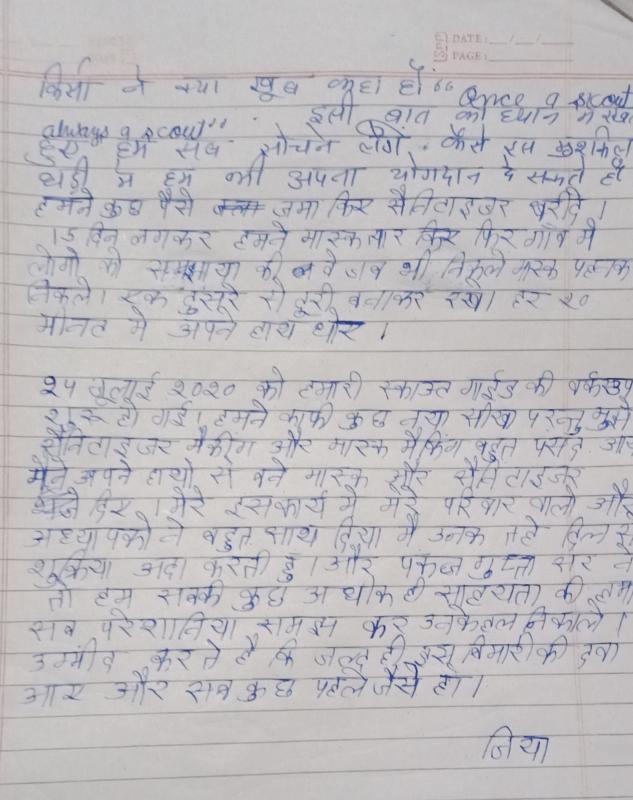 DATE: __/__/__
PAGE:
किसी ने क्या खूब कहा है “Once a scout
always a scout”. इसी बात को ध्यान में रखत
हुए हम सब सोचने लगे. कैसे इस मुश्किल
घड़ी में हम भी अपना योगदान दे सकते है
हमने कुछ पैसे जमा किए सैनिटाइजर खरीदे।
15 दिन लगाकर हमने मास्क तैयार किए फिर गाँव मे
लोगों को समझाया की वे जब भी निकले मास्क पहनक
निकले। एक दुसरे से दुरी बनाकर रखा। हर २०
मीनट मे अपने हाथ धोए।
२५ जुलाई २०२० को हमारी स्काउट गाईड की वर्कशाप
शुरू हो गई। हमने काफी कुछ नया सीखा परन्तु मुझे
सैनिटाइजर मैकींग और मास्क मैकिंग बहुत पसंद आय
मैने अपने हाथो से बने मास्क और सैनिटाइजर
दिए। मेरे इस कार्य मे मेरे परिवार वालो और
अध्यापको ने बहुत साथ दिया मै उनक तहे दिल से
शुक्रिया अदा करती हु। और पंकज गुप्ता सर ने
तो हम सबकी कुछ अधीक ही सहायता की हमा
सब परेशानिया समझ कर उनका हल निकाले।
उम्मीद करते है कि जल्द ही इस बिमारी की दवा
आए और सब कुछ पहले जैसे हो।
जिया